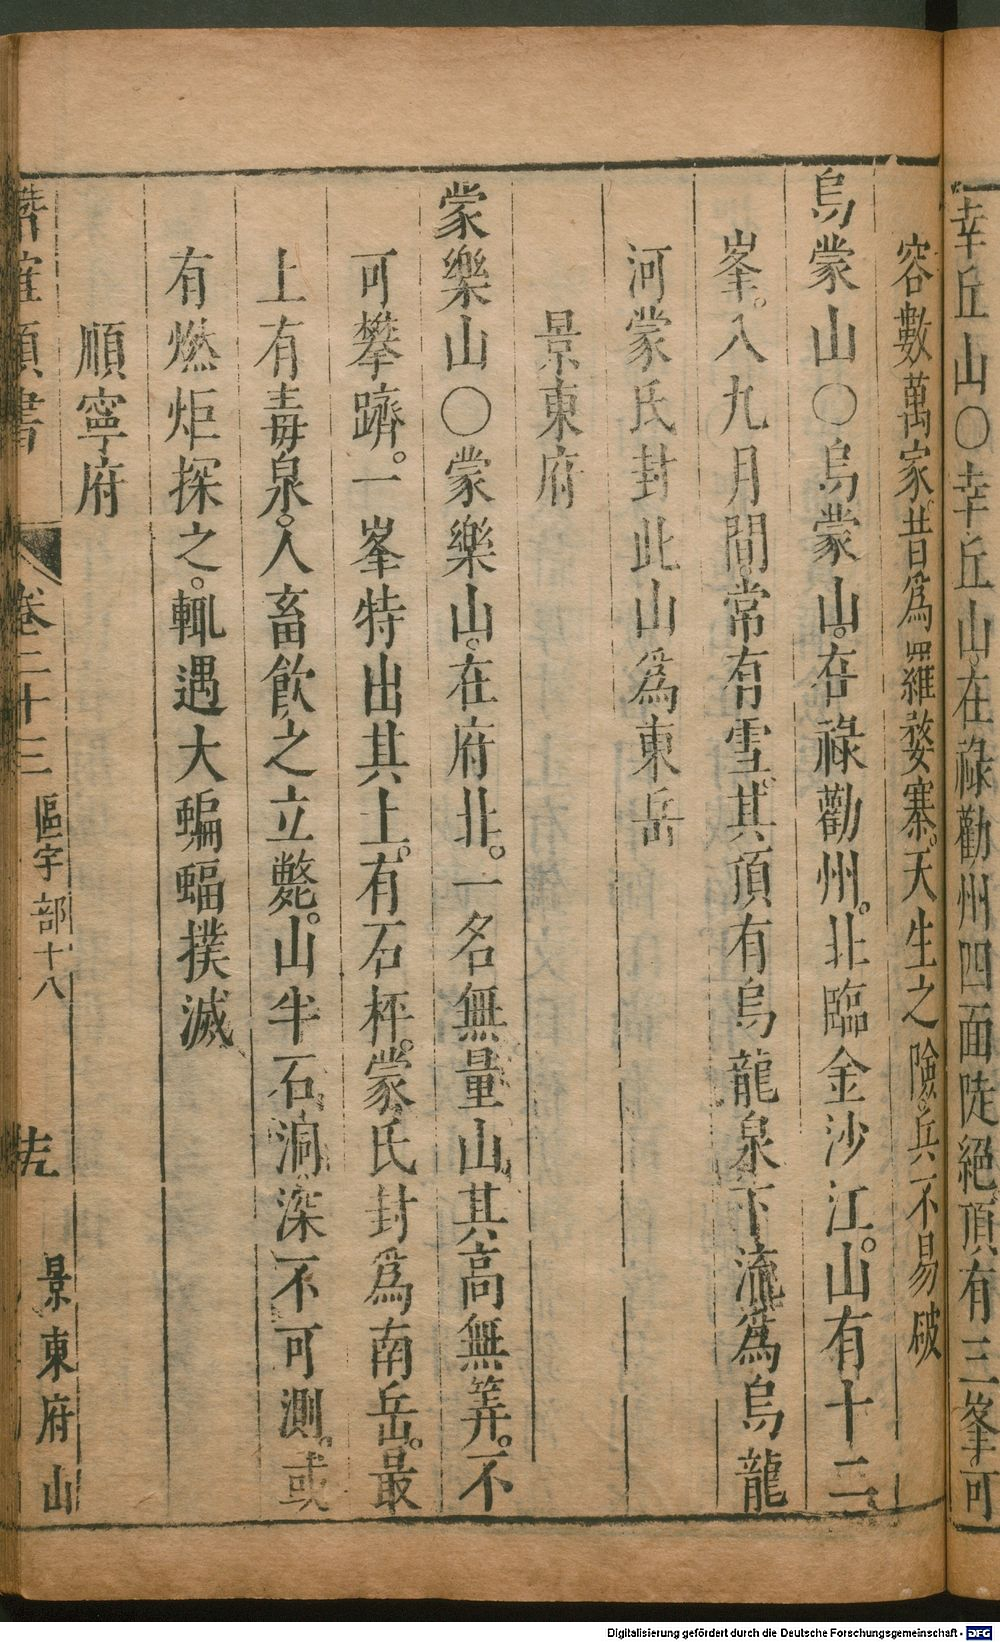 幸丘山〇幸丘山在祿勸州四面陡絕頂有三峯可
容數萬家。昔爲羅婺寨。天生之險。兵不易破
烏蒙山〇烏蒙山。在祿勸州。北臨金沙江。山有十二
峯。八九月間。常有雪。其頂有烏龍泉下流爲烏龍
河蒙氏封此山爲東岳
景東府
蒙樂山〇蒙樂山。在府北。一名無量山。其高無筭。不
可攀躋。一峯特出其上。有石枰。蒙氏封爲南岳。最
上有毒泉。人畜飲之立斃。山半石洞深不可測。或
有燃炬探之。輒遇大蝙蝠撲滅
順寧府
潛確類書 卷二十三 區宇部十八 景東府山
Digitalisierung gefördert durch die Deutsche Forschungsgemeinschaft - DFG